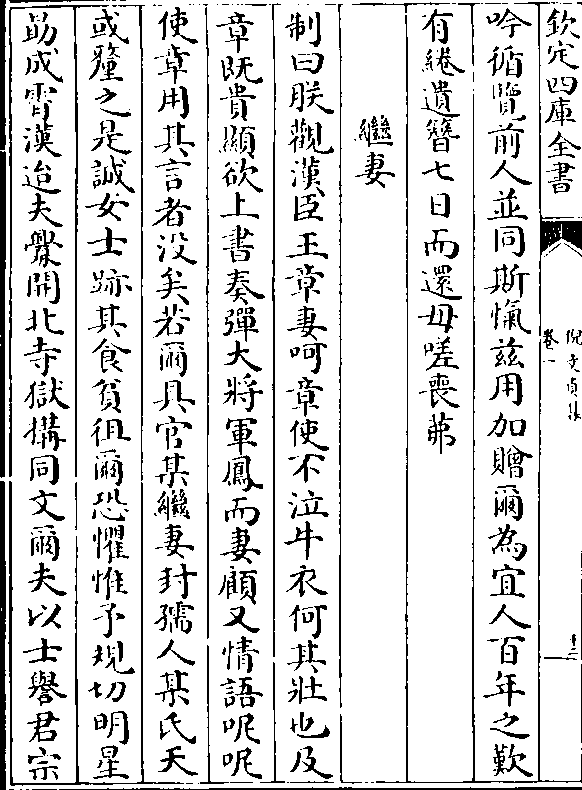 欽定四庫全書
倪文貞集
卷一
十三
吟循覽前人並同斯愾茲用加贈爾為宜人百年之歎
有綣遺簪七日而還毋嗟喪茀
繼妻
制曰朕觀漢臣王章妻呵章使不泣牛衣何其壯也及
章既貴顯欲上書奏彈大將軍鳳而妻顧又情語呢呢
使章用其言者没矣若爾具官某繼妻封孺人某氏天
或釐之是誠女士跡其食貧徂爾恐懼惟予規切明星
勗成霄漢迨夫釁開北寺獄構同文爾夫以士譽君宗